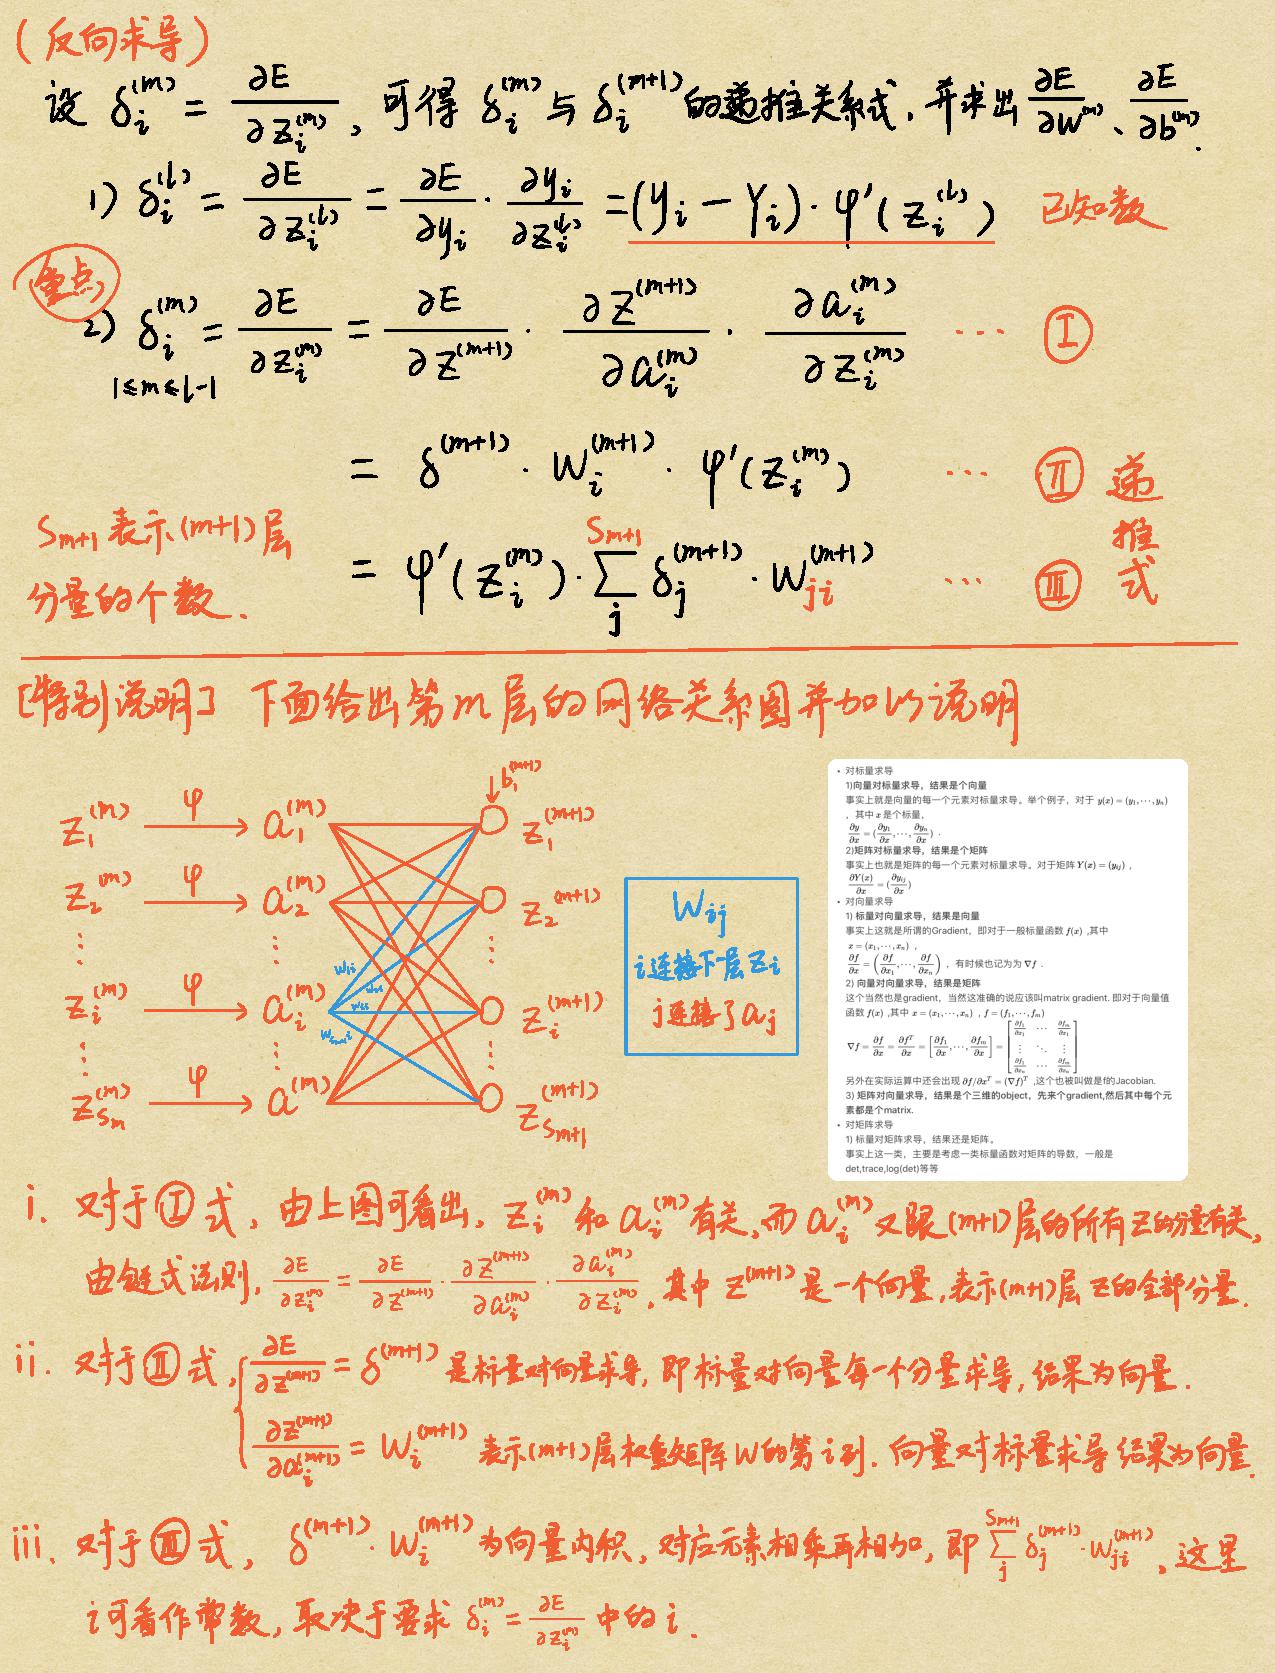 (反向求导)
设 δᵢ⁽ᵐ⁾ = ∂E/∂zᵢ⁽ᵐ⁾, 可得 δᵢ⁽ᵐ⁾ 与 δᵢ⁽ᵐ⁺¹⁾ 的递推关系式, 并求出 ∂E/∂W⁽ᵐ⁾、∂E/∂b⁽ᵐ⁾.
1) δᵢ⁽ˡ⁾ = ∂E/∂zᵢ⁽ˡ⁾ = ∂E/∂yᵢ · ∂yᵢ/∂zᵢ⁽ˡ⁾ = (yᵢ − Yᵢ) · φ′(zᵢ⁽ˡ⁾) 已知数
重点
2) δᵢ⁽ᵐ⁾ = ∂E/∂zᵢ⁽ᵐ⁾ = ∂E/∂z⁽ᵐ⁺¹⁾ · ∂z⁽ᵐ⁺¹⁾/∂aᵢ⁽ᵐ⁾ · ∂aᵢ⁽ᵐ⁾/∂zᵢ⁽ᵐ⁾ … Ⅰ
1≤m≤l-1
= δ⁽ᵐ⁺¹⁾ · Wᵢ⁽ᵐ⁺¹⁾ · φ′(zᵢ⁽ᵐ⁾) … Ⅱ 递推式
Sₘ₊₁ 表示(m+1)层
分量的个数.
= φ′(zᵢ⁽ᵐ⁾) · ∑ⱼ^{Sₘ₊₁} δⱼ⁽ᵐ⁺¹⁾ · Wⱼᵢ⁽ᵐ⁺¹⁾ … Ⅲ
[特别说明] 下面给出第m层的网络关系图并加以说明
b₁⁽ᵐ⁺¹⁾
z₁⁽ᵐ⁾ φ a₁⁽ᵐ⁾ z₁⁽ᵐ⁺¹⁾
z₂⁽ᵐ⁾ φ a₂⁽ᵐ⁾ z₂⁽ᵐ⁺¹⁾
zᵢ⁽ᵐ⁾ φ aᵢ⁽ᵐ⁾ zᵢ⁽ᵐ⁺¹⁾
z_{Sm}⁽ᵐ⁾ φ a⁽ᵐ⁾ z_{Sm+1}⁽ᵐ⁺¹⁾
W₁ᵢ
W₂ᵢ
Wᵢᵢ
W_{Sm+1 i}
Wᵢⱼ
i连接下一层zᵢ
j连接了aⱼ
• 对标量求导
1)向量对标量求导,结果是个向量
事实上就是向量的每一个元素对标量求导。举个例子,对于 y(x) = (y₁,⋯,yₙ)
,其中 x 是个标量,
∂y/∂x = (∂y₁/∂x,⋯,∂yₙ/∂x) .
2)矩阵对标量求导,结果是个矩阵
事实上也就是矩阵的每一个元素对标量求导。对于矩阵 Y(x) = (yᵢⱼ) ,
∂Y(x)/∂x = (∂yᵢⱼ/∂x)
• 对向量求导
1) 标量对向量求导,结果是向量
事实上这就是所谓的Gradient,即对于一般标量函数 f(x) ,其中
x = (x₁,⋯,xₙ) ,
∂f/∂x = (∂f/∂x₁,⋯,∂f/∂xₙ) ,有时候也记为为 ∇f .
2) 向量对向量求导,结果是矩阵
这个当然也是gradient,当然这准确的说应该叫matrix gradient. 即对于向量值
函数 f(x) ,其中 x = (x₁,⋯,xₙ) , f = (f₁,⋯,fₘ)
∇f = ∂f/∂x = ∂fᵀ/∂x = [∂f₁/∂x,⋯,∂fₘ/∂x] = [∂f₁/∂x₁ ⋯ ∂fₘ/∂x₁ ⋮ ⋱ ⋮ ∂f₁/∂xₙ ⋯ ∂fₘ/∂xₙ]
另外在实际运算中还会出现 ∂f/∂xᵀ = (∇f)ᵀ ,这个也被叫做是f的Jacobian.
3) 矩阵对向量求导,结果是个三维的object,先来个gradient,然后其中每个元
素都是个matrix.
• 对矩阵求导
1) 标量对矩阵求导,结果还是矩阵。
事实上这一类,主要是考虑一类标量函数对矩阵的导数,一般是
det,trace,log(det)等等
i. 对于Ⅰ式, 由上图可看出, zᵢ⁽ᵐ⁾ 和 aᵢ⁽ᵐ⁾ 有关, 而 aᵢ⁽ᵐ⁾ 又跟(m+1)层的所有z的分量有关,
由链式法则, ∂E/∂zᵢ⁽ᵐ⁾ = ∂E/∂z⁽ᵐ⁺¹⁾ · ∂z⁽ᵐ⁺¹⁾/∂aᵢ⁽ᵐ⁾ · ∂aᵢ⁽ᵐ⁾/∂zᵢ⁽ᵐ⁾, 其中 z⁽ᵐ⁺¹⁾ 是一个向量, 表示(m+1)层z的全部分量.
ii. 对于Ⅱ式, ∂E/∂z⁽ᵐ⁺¹⁾ = δ⁽ᵐ⁺¹⁾ 是标量对向量求导, 即标量对向量每一个分量求导, 结果为向量.
∂z⁽ᵐ⁺¹⁾/∂aᵢ⁽ᵐ⁺¹⁾ = Wᵢ⁽ᵐ⁺¹⁾ 表示(m+1)层权重矩阵W的第i列. 向量对标量求导 结果为向量.
iii. 对于Ⅲ式, δ⁽ᵐ⁺¹⁾ · Wᵢ⁽ᵐ⁺¹⁾ 为向量内积, 对应元素相乘再相加, 即 ∑ⱼ^{Sₘ₊₁} δⱼ⁽ᵐ⁺¹⁾ · Wⱼᵢ⁽ᵐ⁺¹⁾, 这里
i可看作常数, 取决于要求 δᵢ⁽ᵐ⁾ = ∂E/∂zᵢ⁽ᵐ⁾ 中的i.